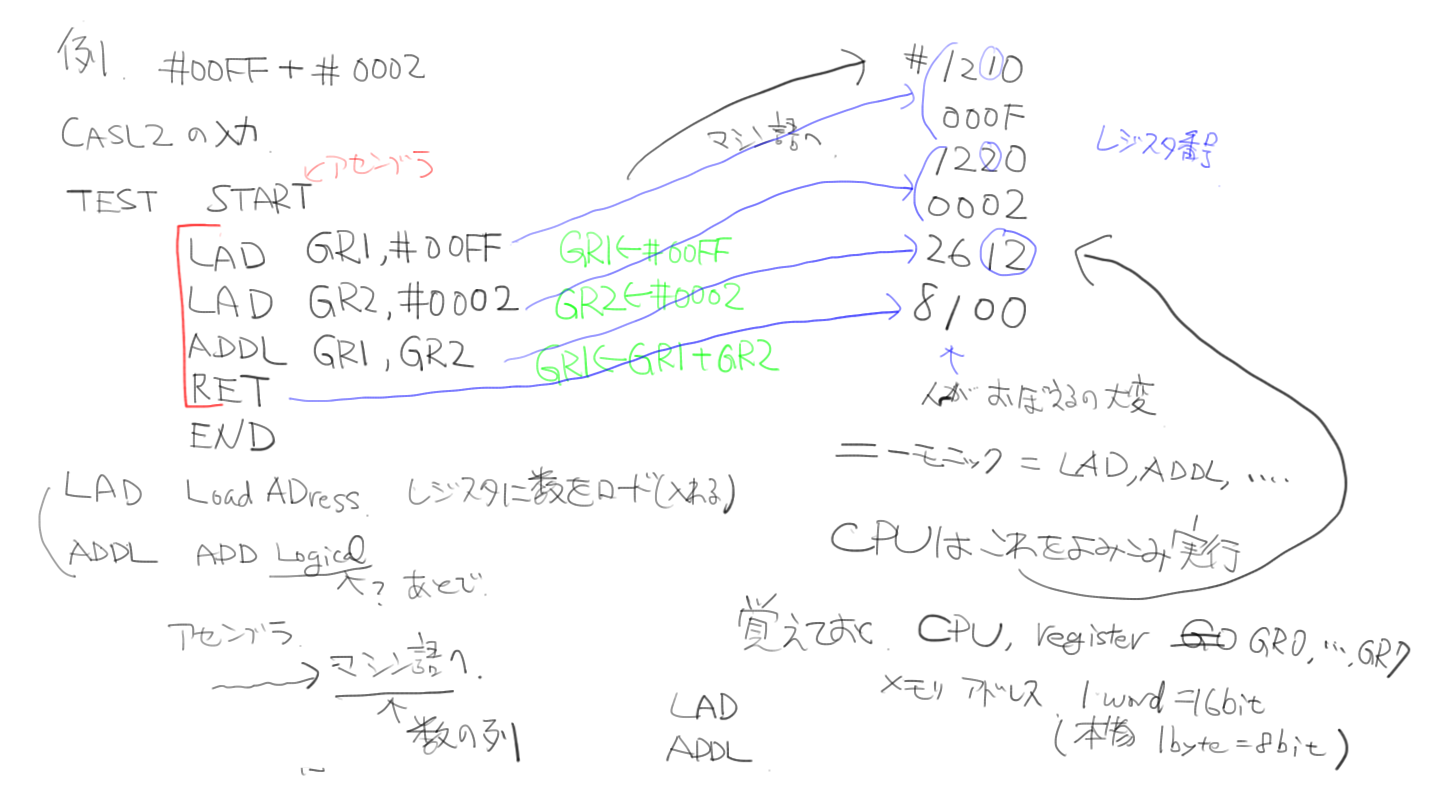 例1. #00FF + #0002
CASL2の入力
←アセンブラ
TEST START
LAD GR1,#00FF
LAD GR2,#0002
ADDL GR1,GR2
RET
END
GR1←#00FF
GR2←#0002
GR1←GR1+GR2
マシン語へ
#1210
000F
1220
0002
2612
8100
レジスタ番号
人がおぼえるの大変
ニーモニック = LAD,ADDL,.....
CPUはこれをよみこみ実行
LAD Load ADress レジスタに数をロード(入れる)
ADDL ADD Logical
? あとで
アセンブラ
マシン語へ.
数の列
覚えておく CPU, register GR0,…,GR7
メモリ アドレス 1 word=16bit
(本物 1byte=8bit)
LAD
ADDL